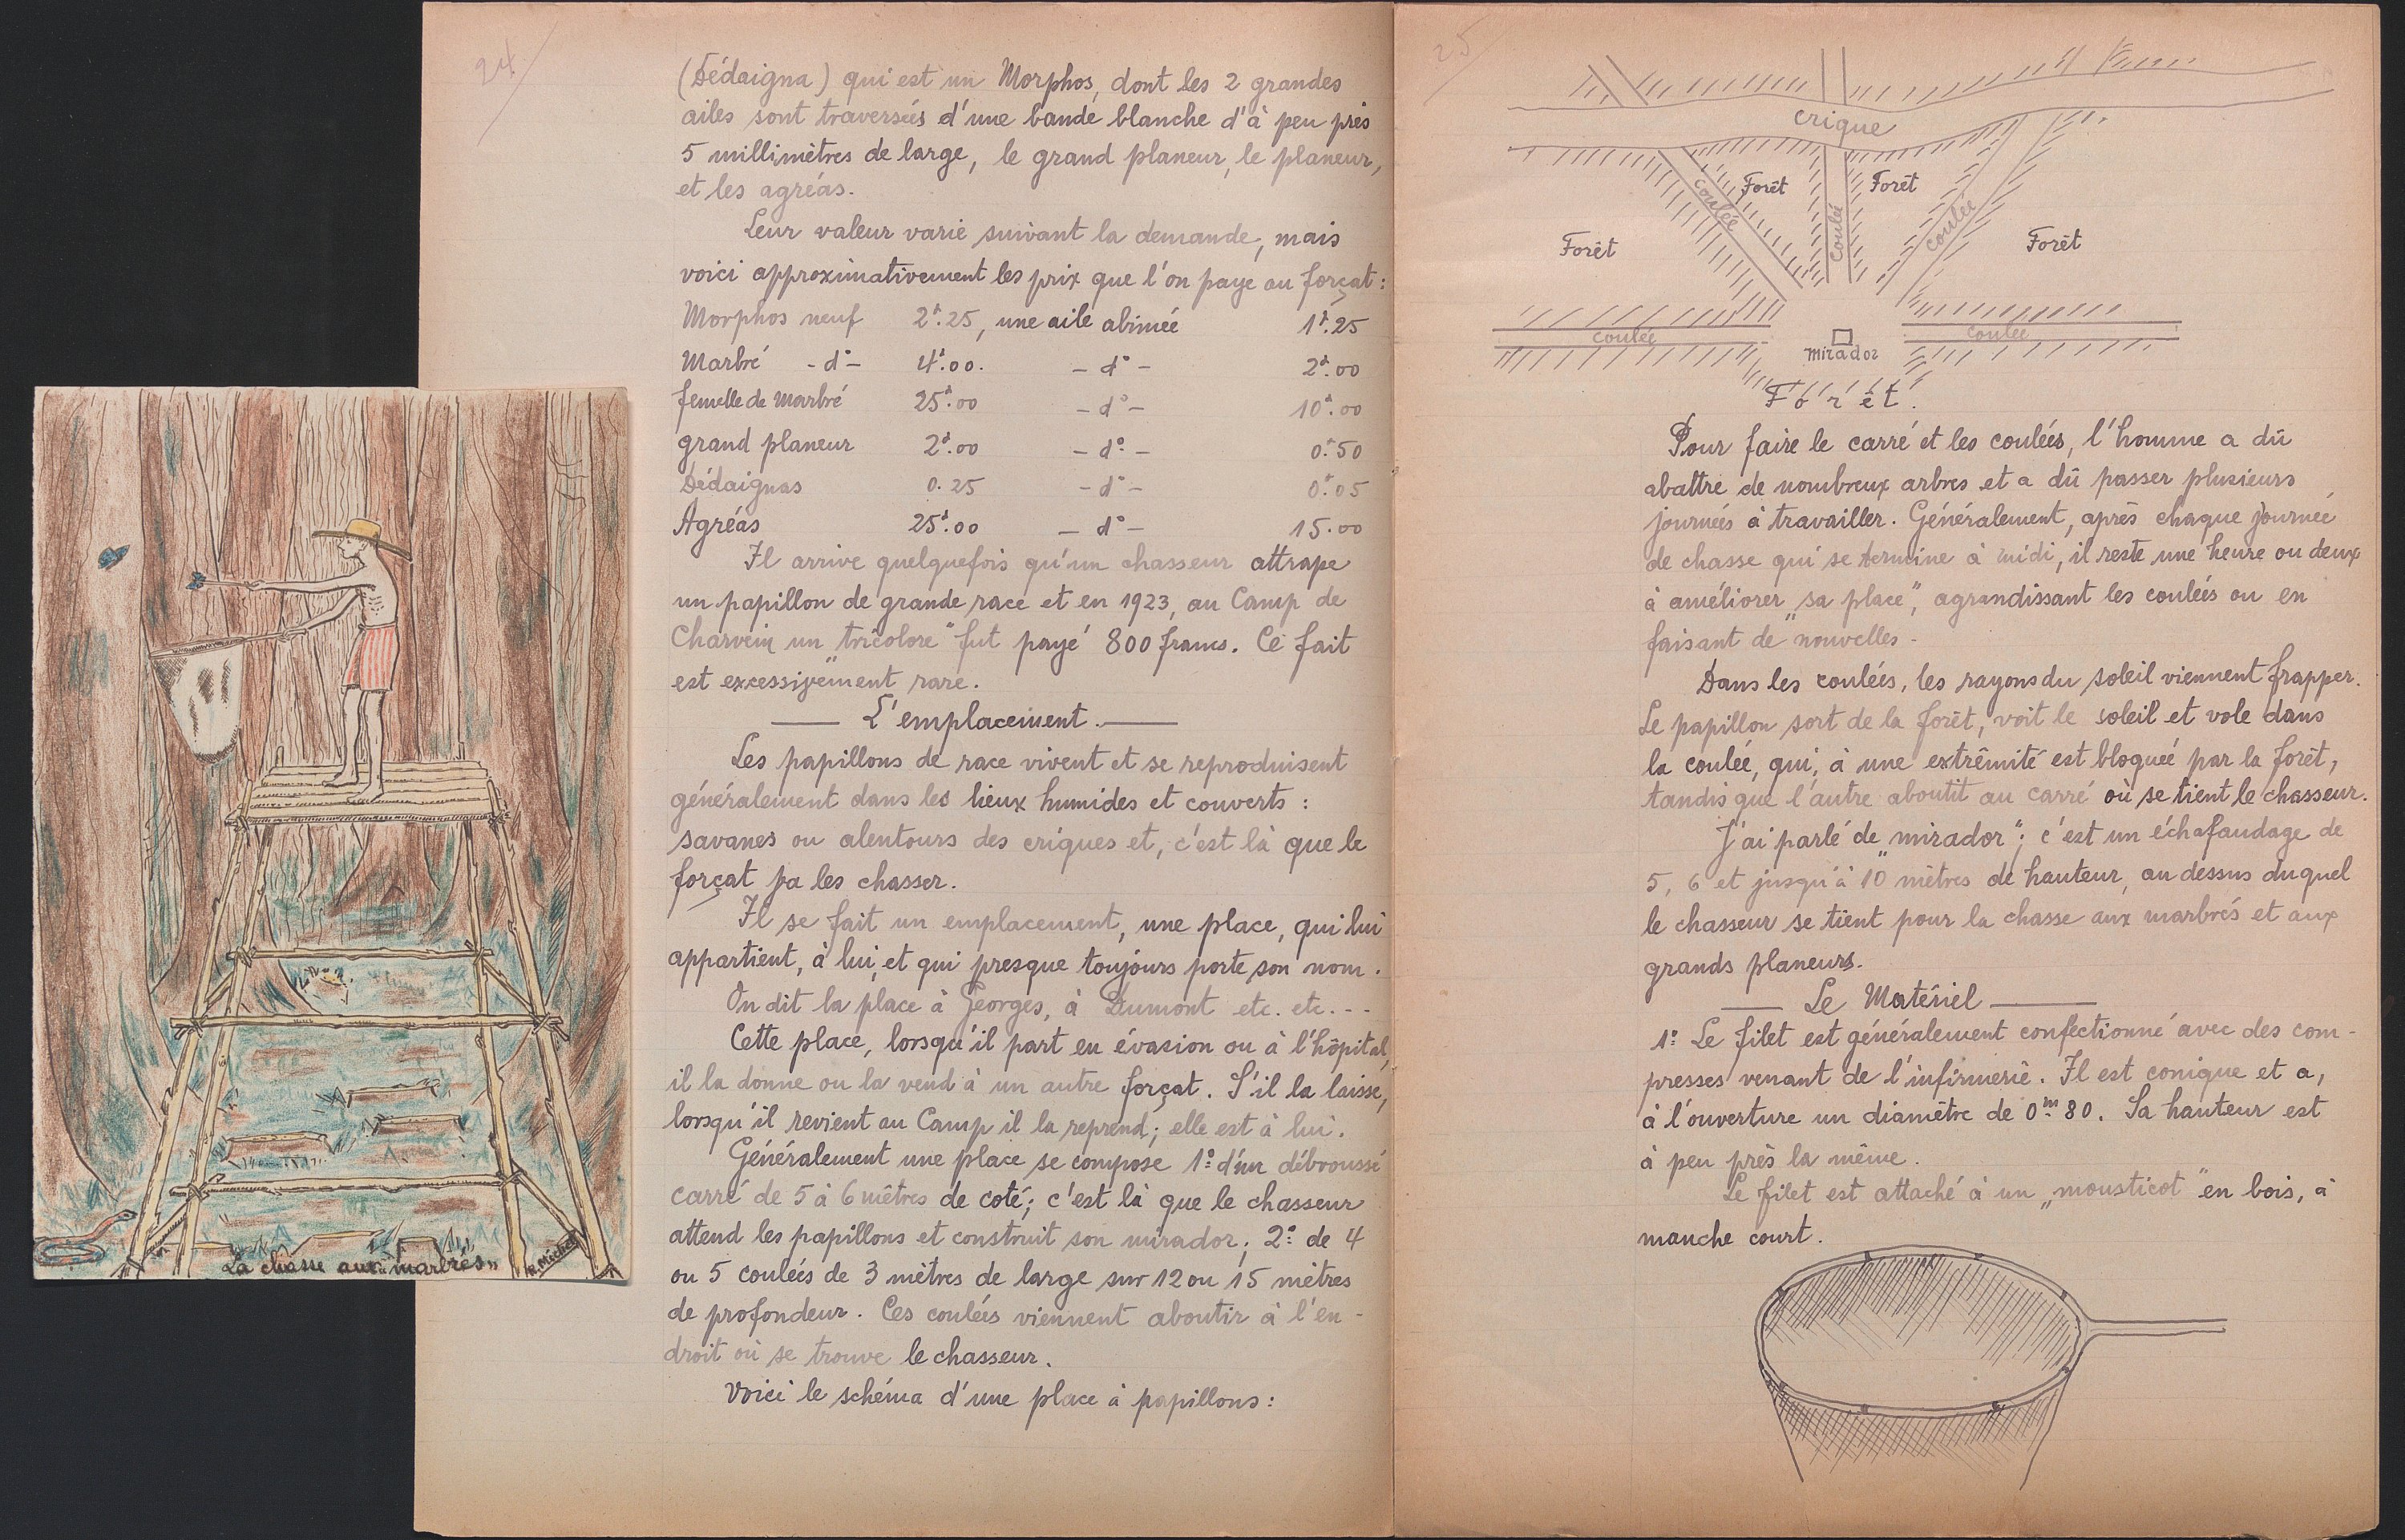 24
(Dédaigna) qui est un Morphos, dont les 2 grandes
ailes sont traversées d'une bande blanche d'à peu près
5 millimètres de large, le grand planeur, le planeur,
et les agréas.
Leur valeur varie suivant la demande, mais
voici approximativement les prix que l'on paye au forçat :
Morphos neuf 2f.25, une aile abimée 1f.25
Marbré -d°- 4f.00. -d°- 2f.00
femelle de Marbré 25f.00 -d°- 10f.00
grand planeur 2f.00 -d°- 0f.50
Dédaignas 0.25 -d°- 0f.05
Agréas 25f.00 -d°- 15.00
Il arrive quelquefois qu'un chasseur attrape
un papillon de grande race et en 1923, au Camp de
Charvein un "tricolore" fut payé 800 francs. Ce fait
est excessivement rare.
— L'emplacement. —
Les papillons de race vivent et se reproduisent
généralement dans les lieux humides et couverts :
savanes ou alentours des criques et, c'est là que le
forçat va les chasser.
Il se fait un emplacement, une place, qui lui
appartient, à lui, et qui presque toujours porte son nom.
On dit la place à Georges, à Dumont etc. etc. ---
Cette place, lorsqu'il part en évasion ou à l'hôpital,
il la donne ou la vend à un autre forçat. S'il la laisse,
lorsqu'il revient au Camp il la reprend; elle est à lui.
Généralement une place se compose 1° d'un débroussé
carré de 5 à 6 mètres de coté; c'est là que le chasseur
attend les papillons et construit son mirador; 2° de 4
ou 5 coulées de 3 mètres de large sur 12 ou 15 mètres
de profondeur. Ces coulées viennent aboutir à l'en-
droit où se trouve le chasseur.
Voici le schéma d'une place à papillons :
La chasse aux "marbrés"
R. Michel
25
crique
Forêt
Forêt
coulée
coulée
coulée
Forêt
Forêt
coulée
coulée
mirador
Forêt.
Pour faire le carré et les coulées, l'homme a dû
abattre de nombreux arbres et a dû passer plusieurs
journées à travailler. Généralement, après chaque journée
de chasse qui se termine à midi, il reste une heure ou deux
à améliorer "sa place", agrandissant les coulées ou en
faisant de nouvelles -
Dans les coulées, les rayons du soleil viennent frapper.
Le papillon sort de la forêt, voit le soleil et vole dans
la coulée, qui, à une extrêmité est bloquée par la forêt,
tandis que l'autre aboutit au carré où se tient le chasseur.
J'ai parlé de "mirador"; c'est un échafaudage de
5, 6 et jusqu'à 10 mètres de hauteur, au dessus duquel
le chasseur se tient pour la chasse aux marbrés et aux
grands planeurs.
— Le Matériel —
1° Le filet est généralement confectionné avec des com-
presses venant de l'infirmerie. Il est conique et a,
à l'ouverture un diamètre de 0m80. Sa hauteur est
à peu près la même.
Le filet est attaché à un "mousticot" en bois, à
manche court.